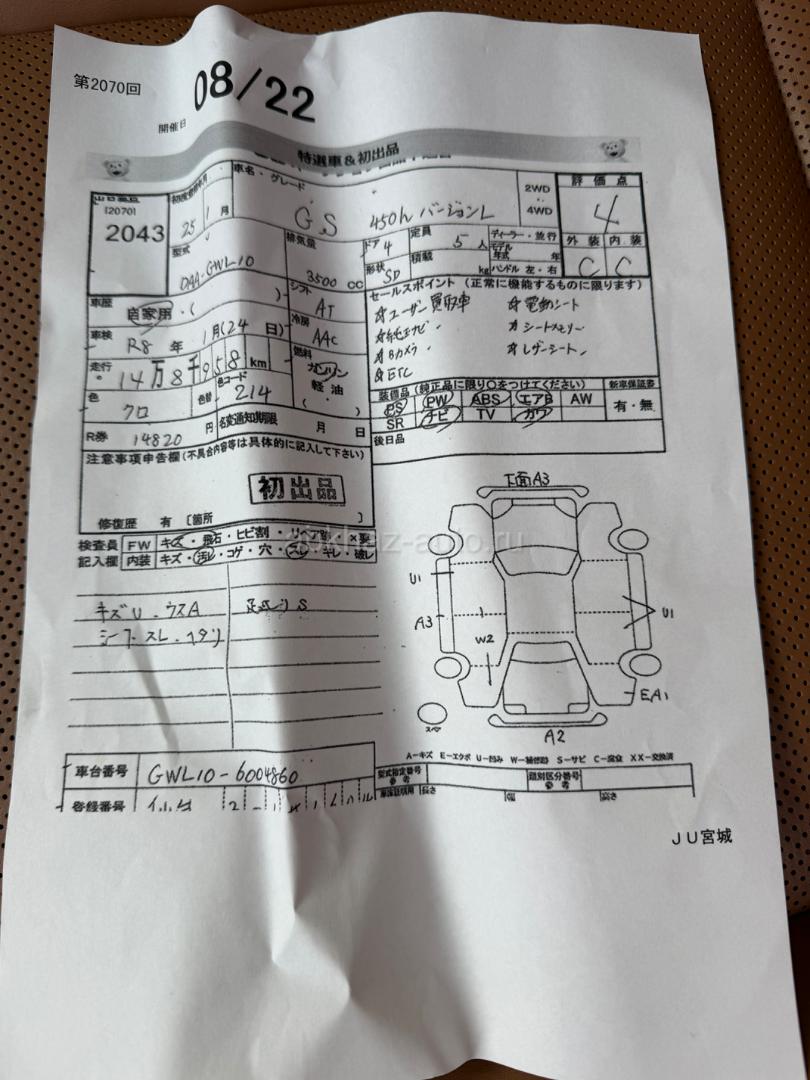 第2070回
08/22
開催日
特選車&初出品
[2070]
2043
25 1月
車名・グレード
GS 450h バージョンL
2WD
4WD
評価点
4
外装 内装
C C
型式
DAA-GWL10
排気量
3500 CC
ドア 4
定員 5人
ディーラー・並行
モデル年式 年
形状 SD
積載 kg
ハンドル 左・右
シフト
AT
車歴 自家用・( )
冷房
AAC
車検 R8年1月(24日)
走行 14万8千958km
燃料
ガソリン
軽油
( )
色 クロ
色替
色コード 214
R券 14820円
名変通知期限 月 日
セールスポイント (正常に機能するものに限ります)
☆ユーザー買取車 ☆電動シート
☆純正ナビ ☆シートメモリー
☆Bカメラ ☆レザーシート
☆ETC
装備品 (純正品に限り○をつけてください)
PS PW ABS エアB AW
SR ナビ TV カワ
新車保証書
有・無
後日品
注意事項申告欄(不具合内容等は具体的に記入して下さい)
初出品
修復歴 有 [箇所 ]
検査員
記入欄
FW キズ・飛石・ヒビ割・リペア跡・X要
内装 キズ・汚れ・コゲ・穴・スレ・キレ・破れ
キズU・ウスA
シートスレ・ヘタリ
下回りS
下面A3
U1
A3
W2
U1
EA1
スペア
A2
A-キズ E-エクボ U-凹み W-補修跡 S-サビ C-腐食 XX-交換済
車台番号 GWL10-6004860
型式指定番号
参考
類別区分番号
参考
車庫証明用 長さ 幅 高さ
登録番号
JU宮城
akhaz-auto.ru